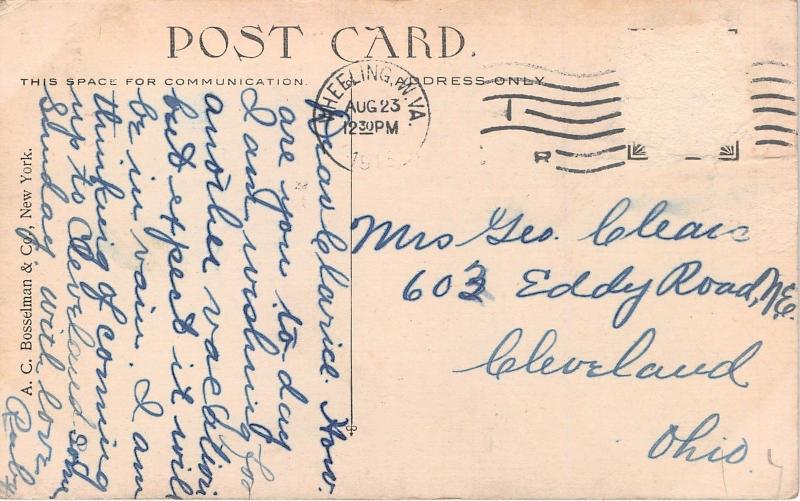 POST CARD.
THIS SPACE FOR COMMUNICATION.
ADDRESS ONLY.
WHEELING, W. VA.
AUG 23
12 30 PM
Dear Clarice. How.
are you to day
I am wishing for
another vacation
but expect it will
be in vain. I am
thinking of coming
up to Cleveland some
Sunday, with love
Ruby
Mrs Geo. Clears
603 Eddy Road, N.E.
Cleveland
Ohio.
A. C. Bosselman & Co., New York.